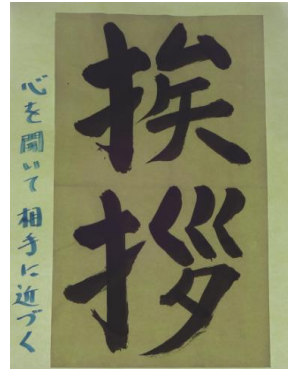 挨拶
心を開いて相手に近づく